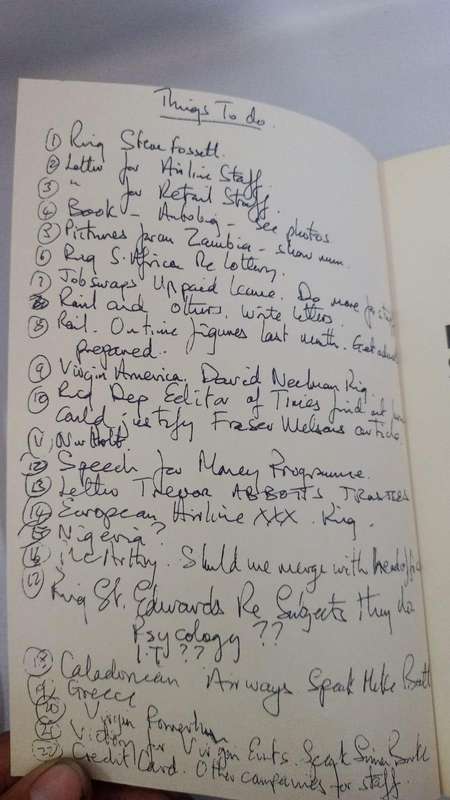 Things To do
① Ring Steve Fossett.
② Letter for Airline Staff.
③ " for Retail Staff.
④ Book - Autobiog - see photos
⑤ Pictures from Zambia - show mum.
⑥ Ring S. Africa Re Lottery.
⑦ Jobswaps Unpaid leave. Do more for
Rail and others. Write letters.
⑧ Rail. On time figures last month. Get
prepared.
⑨ Virgin America. David Neelman Ring.
⑩ Ring Dep Editor of Times find out
could justify Fraser Nelsons article
⑪
⑫ Speech for Money Programme.
⑬ Letter Trevor ABBOTTS TRUSTEES
⑭ European Airline XXX. Ring.
⑮ Nigeria?
⑯ McCarthy. Should we merge with
⑰ Ring St. Edwards Re Subjects they do
Psycology ??
I.T ??
⑱ Caladonean Airways Speak Mike
⑲ Greece
⑳ Virgin
㉑ for Virgin Speak Simon
㉒ Credit Card. Other companies for staff.